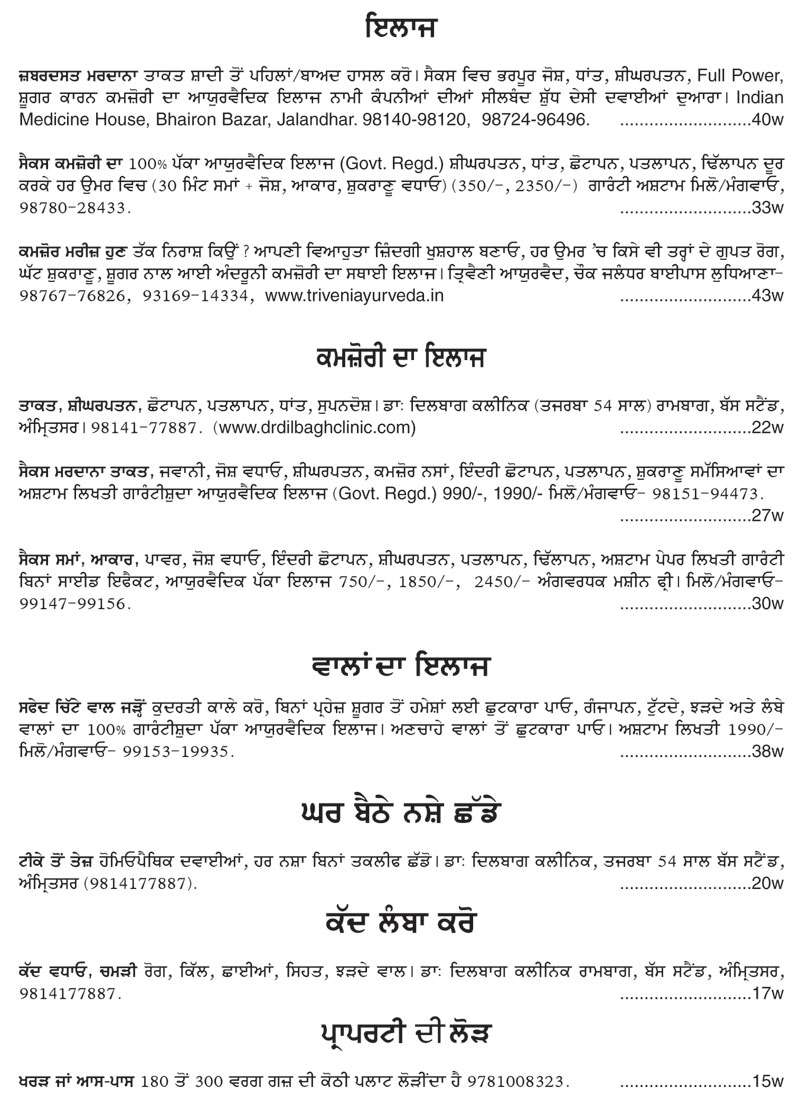 ਇਲਾਜ
ਜ਼ਬਰਦਸਤ ਮਰਦਾਨਾ ਤਾਕਤ ਸ਼ਾਦੀ ਤੋਂ ਪਹਿਲਾਂ/ਬਾਅਦ ਹਾਸਲ ਕਰੋ। ਸੈਕਸ ਵਿਚ ਭਰਪੂਰ ਜੋਸ਼, ਧਾਂਤ, ਸ਼ੀਘਰਪਤਨ, Full Power,
ਸ਼ੂਗਰ ਕਾਰਨ ਕਮਜ਼ੋਰੀ ਦਾ ਆਯੁਰਵੈਦਿਕ ਇਲਾਜ ਨਾਮੀ ਕੰਪਨੀਆਂ ਦੀਆਂ ਸੀਲਬੰਦ ਸ਼ੁੱਧ ਦੇਸੀ ਦਵਾਈਆਂ ਦੁਆਰਾ। Indian
Medicine House, Bhairon Bazar, Jalandhar. 98140-98120, 98724-96496. ...........................40w
ਸੈਕਸ ਕਮਜ਼ੋਰੀ ਦਾ 100% ਪੱਕਾ ਆਯੁਰਵੈਦਿਕ ਇਲਾਜ (Govt. Regd.) ਸ਼ੀਘਰਪਤਨ, ਧਾਂਤ, ਛੋਟਾਪਨ, ਪਤਲਾਪਨ, ਢਿੱਲਾਪਨ ਦੂਰ
ਕਰਕੇ ਹਰ ਉਮਰ ਵਿਚ (30 ਮਿੰਟ ਸਮਾਂ + ਜੋਸ਼, ਆਕਾਰ, ਸ਼ੁਕਰਾਣੂ ਵਧਾਓ) (350/-, 2350/-) ਗਾਰੰਟੀ ਅਸ਼ਟਾਮ ਮਿਲੋ/ਮੰਗਵਾਓ,
98780-28433. ...........................33w
ਕਮਜ਼ੋਰ ਮਰੀਜ਼ ਹੁਣ ਤੱਕ ਨਿਰਾਸ਼ ਕਿਉਂ ? ਆਪਣੀ ਵਿਆਹੁਤਾ ਜ਼ਿੰਦਗੀ ਖੁਸ਼ਹਾਲ ਬਣਾਓ, ਹਰ ਉਮਰ 'ਚ ਕਿਸੇ ਵੀ ਤਰ੍ਹਾਂ ਦੇ ਗੁਪਤ ਰੋਗ,
ਘੱਟ ਸ਼ੁਕਰਾਣੂ, ਸ਼ੂਗਰ ਨਾਲ ਆਈ ਅੰਦਰੂਨੀ ਕਮਜ਼ੋਰੀ ਦਾ ਸਥਾਈ ਇਲਾਜ। ਤ੍ਰਿਵੈਣੀ ਆਯੁਰਵੈਦ, ਚੌਕ ਜਲੰਧਰ ਬਾਈਪਾਸ ਲੁਧਿਆਣਾ-
98767-76826, 93169-14334, www.triveniayurveda.in ...........................43w
ਕਮਜ਼ੋਰੀ ਦਾ ਇਲਾਜ
ਤਾਕਤ, ਸ਼ੀਘਰਪਤਨ, ਛੋਟਾਪਨ, ਪਤਲਾਪਨ, ਧਾਂਤ, ਸੁਪਨਦੋਸ਼। ਡਾ: ਦਿਲਬਾਗ ਕਲੀਨਿਕ (ਤਜਰਬਾ 54 ਸਾਲ) ਰਾਮਬਾਗ, ਬੱਸ ਸਟੈਂਡ,
ਅੰਮ੍ਰਿਤਸਰ। 98141-77887. (www.drdilbaghclinic.com) ...........................22w
ਸੈਕਸ ਮਰਦਾਨਾ ਤਾਕਤ, ਜਵਾਨੀ, ਜੋਸ਼ ਵਧਾਓ, ਸ਼ੀਘਰਪਤਨ, ਕਮਜ਼ੋਰ ਨਸਾਂ, ਇੰਦਰੀ ਛੋਟਾਪਨ, ਪਤਲਾਪਨ, ਸ਼ੁਕਰਾਣੂ ਸਮੱਸਿਆਵਾਂ ਦਾ
ਅਸ਼ਟਾਮ ਲਿਖਤੀ ਗਾਰੰਟੀਸ਼ੁਦਾ ਆਯੁਰਵੈਦਿਕ ਇਲਾਜ (Govt. Regd.) 990/-, 1990/- ਮਿਲੋ/ਮੰਗਵਾਓ- 98151-94473.
...........................27w
ਸੈਕਸ ਸਮਾਂ, ਆਕਾਰ, ਪਾਵਰ, ਜੋਸ਼ ਵਧਾਓ, ਇੰਦਰੀ ਛੋਟਾਪਨ, ਸ਼ੀਘਰਪਤਨ, ਪਤਲਾਪਨ, ਢਿੱਲਾਪਨ, ਅਸ਼ਟਾਮ ਪੇਪਰ ਲਿਖਤੀ ਗਾਰੰਟੀ
ਬਿਨਾਂ ਸਾਈਡ ਇਫੈਕਟ, ਆਯੁਰਵੈਦਿਕ ਪੱਕਾ ਇਲਾਜ 750/-, 1850/-, 2450/- ਅੰਗਵਰਧਕ ਮਸ਼ੀਨ ਫ੍ਰੀ। ਮਿਲੋ/ਮੰਗਵਾਓ-
99147-99156. ...........................30w
ਵਾਲਾਂ ਦਾ ਇਲਾਜ
ਸਫੇਦ ਚਿੱਟੇ ਵਾਲ ਜੜ੍ਹੋਂ ਕੁਦਰਤੀ ਕਾਲੇ ਕਰੋ, ਬਿਨਾਂ ਪ੍ਰਹੇਜ਼ ਸ਼ੂਗਰ ਤੋਂ ਹਮੇਸ਼ਾਂ ਲਈ ਛੁਟਕਾਰਾ ਪਾਓ, ਗੰਜਾਪਨ, ਟੁੱਟਦੇ, ਝੜਦੇ ਅਤੇ ਲੰਬੇ
ਵਾਲਾਂ ਦਾ 100% ਗਾਰੰਟੀਸ਼ੁਦਾ ਪੱਕਾ ਆਯੁਰਵੈਦਿਕ ਇਲਾਜ। ਅਣਚਾਹੇ ਵਾਲਾਂ ਤੋਂ ਛੁਟਕਾਰਾ ਪਾਓ। ਅਸ਼ਟਾਮ ਲਿਖਤੀ 1990/-
ਮਿਲੋ/ਮੰਗਵਾਓ- 99153-19935. ...........................38w
ਘਰ ਬੈਠੇ ਨਸ਼ੇ ਛੱਡੇ
ਟੀਕੇ ਤੋਂ ਤੇਜ਼ ਹੋਮਿਓਪੈਥਿਕ ਦਵਾਈਆਂ, ਹਰ ਨਸ਼ਾ ਬਿਨਾਂ ਤਕਲੀਫ ਛੱਡੋ। ਡਾ: ਦਿਲਬਾਗ ਕਲੀਨਿਕ, ਤਜਰਬਾ 54 ਸਾਲ ਬੱਸ ਸਟੈਂਡ,
ਅੰਮ੍ਰਿਤਸਰ (9814177887). ...........................20w
ਕੱਦ ਲੰਬਾ ਕਰੋ
ਕੱਦ ਵਧਾਓ, ਚਮੜੀ ਰੋਗ, ਕਿੱਲ, ਛਾਈਆਂ, ਸਿਹਤ, ਝੜਦੇ ਵਾਲ। ਡਾ: ਦਿਲਬਾਗ ਕਲੀਨਿਕ ਰਾਮਬਾਗ, ਬੱਸ ਸਟੈਂਡ, ਅੰਮ੍ਰਿਤਸਰ,
9814177887. ...........................17w
ਪ੍ਰਾਪਰਟੀ ਦੀ ਲੋੜ
ਖਰੜ ਜਾਂ ਆਸ-ਪਾਸ 180 ਤੋਂ 300 ਵਰਗ ਗਜ਼ ਦੀ ਕੋਠੀ ਪਲਾਟ ਲੋੜੀਂਦਾ ਹੈ 9781008323. ...........................15w